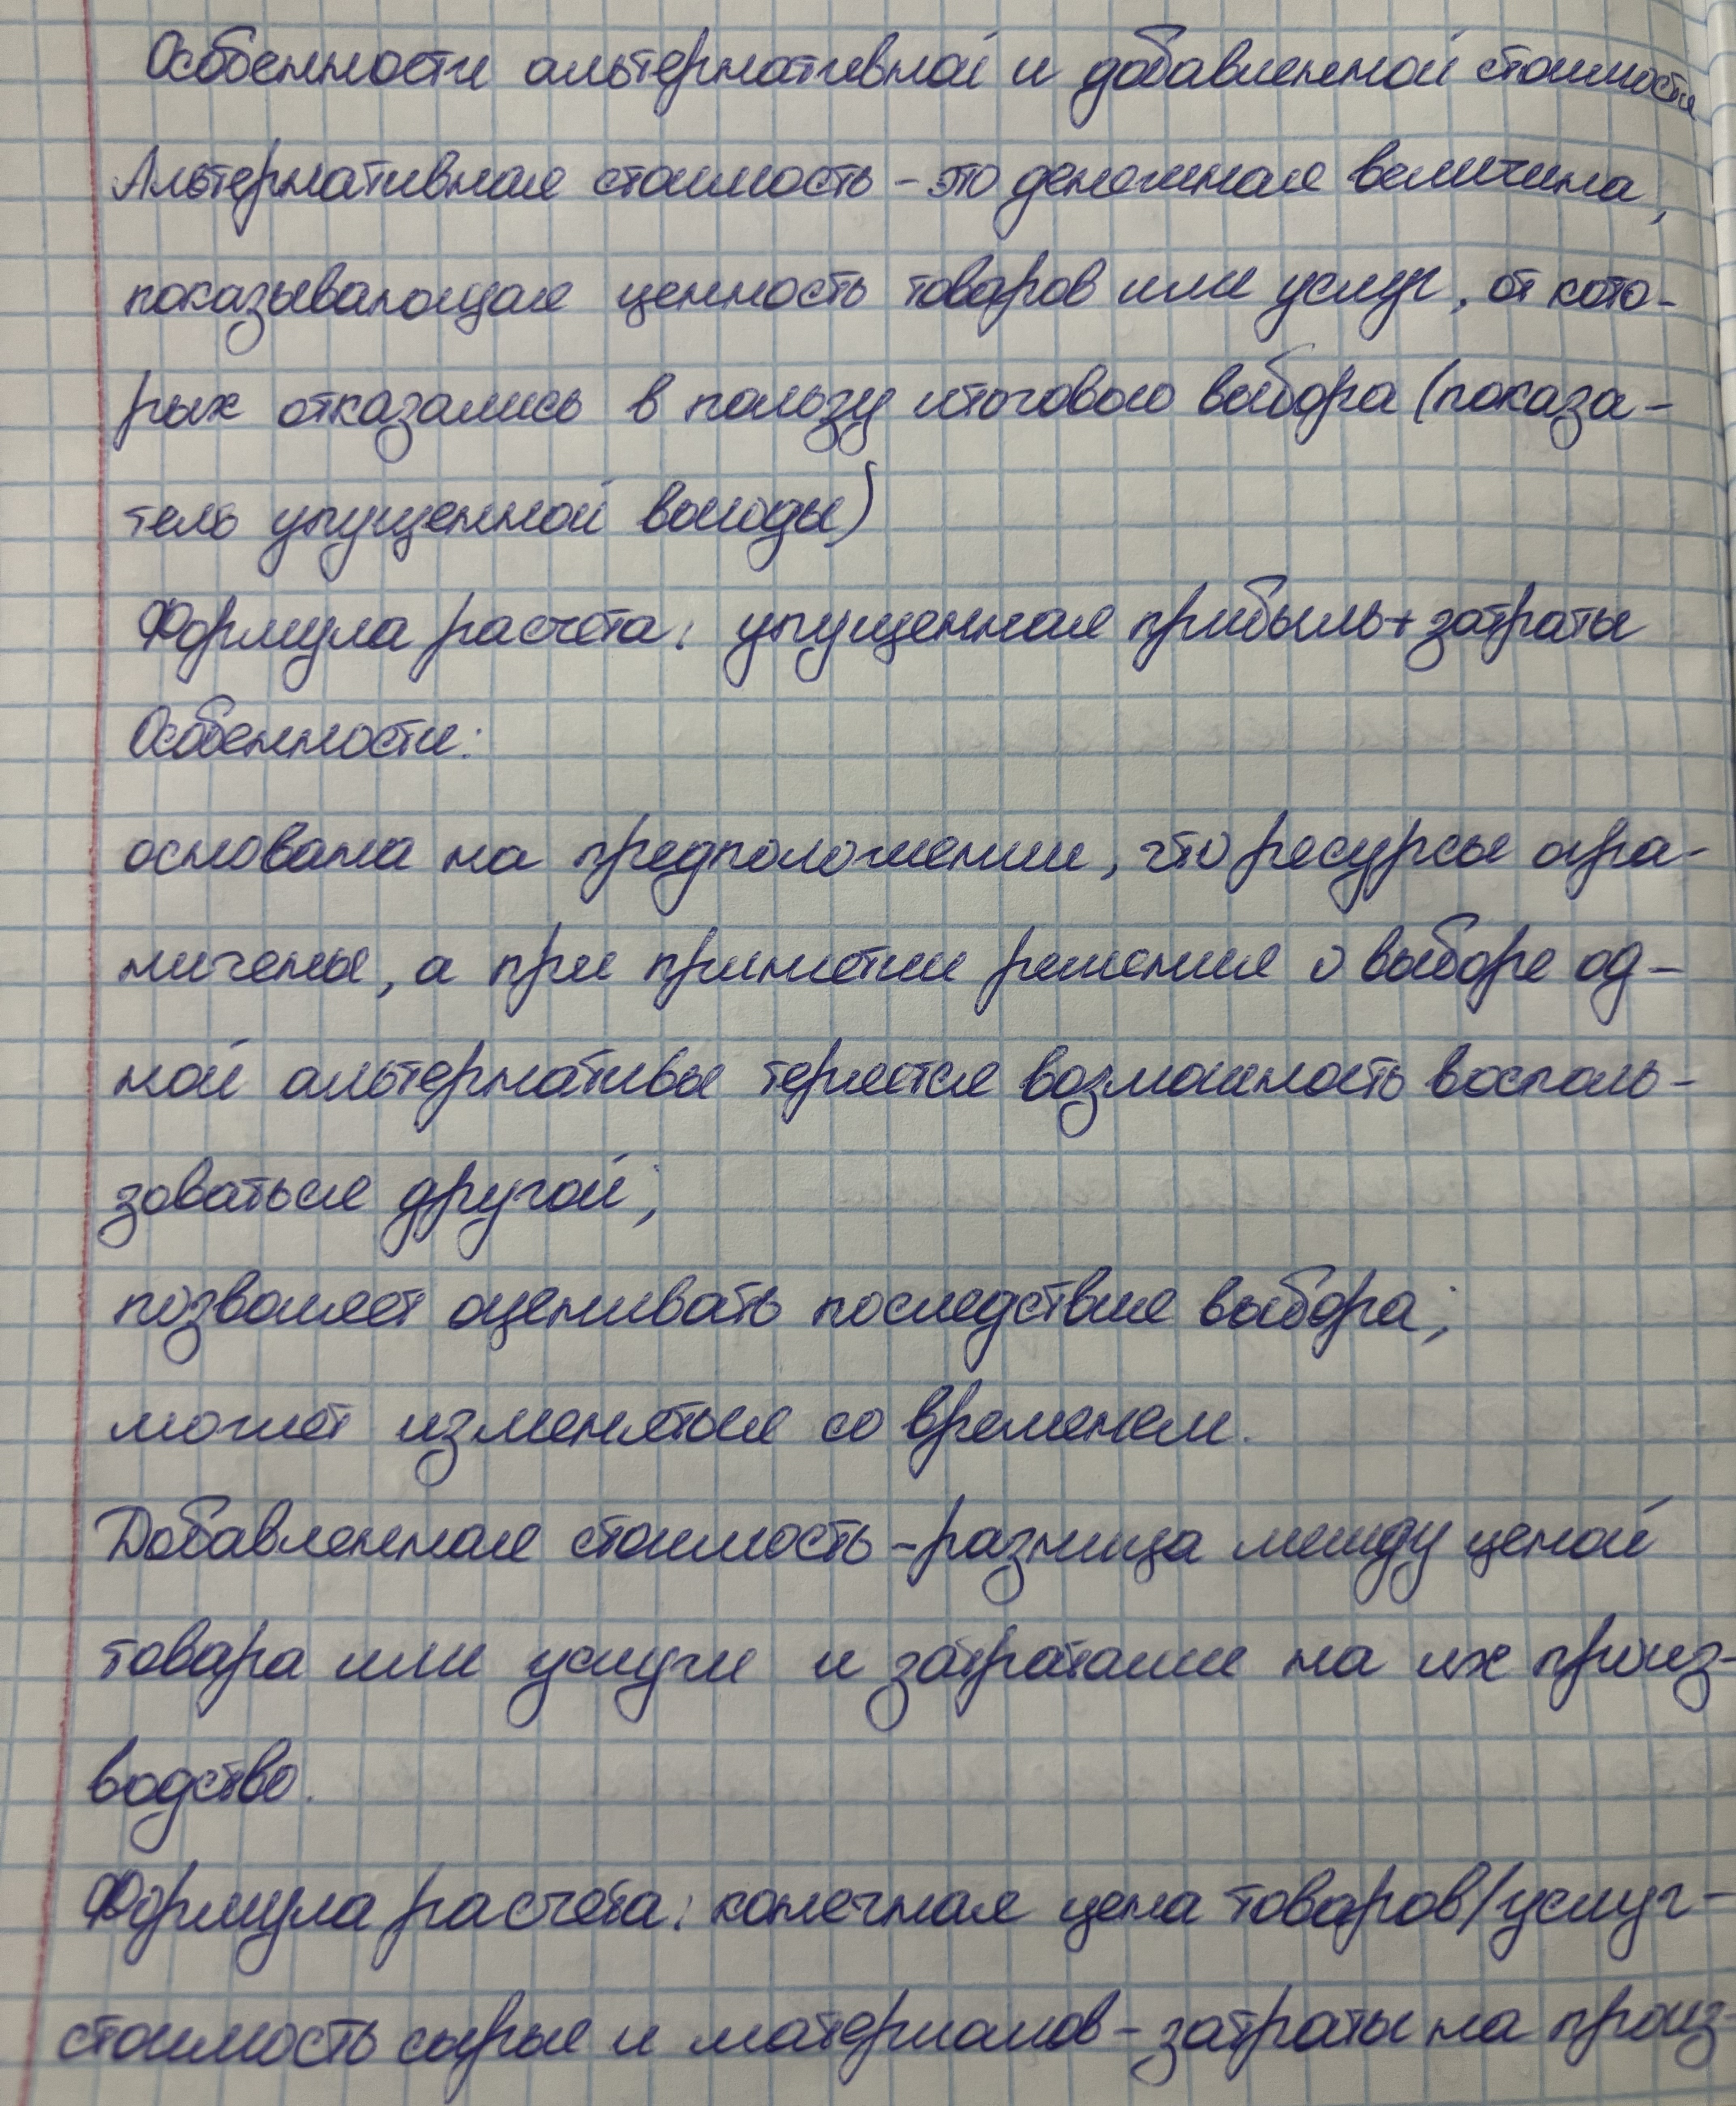 Особенности альтернативной и добавленной стоимости
Альтернативная стоимость - это денежная величина,
показывающая ценность товаров или услуг, от кото-
рых отказались в пользу итогового выбора (показа-
тель упущенной выгоды)
Формула расчёта: упущенная прибыль + затраты
Особенности:
основана на предположении, что ресурсы огра-
ничены, а при принятии решения о выборе од-
ной альтернативы теряется возможность восполь-
зоваться другой;
позволяет оценивать последствие выбора;
может изменяться со временем.
Добавленная стоимость - разница между ценой
товара или услуги и затратами на их произ-
водство.
Формула расчёта: конечная цена товаров/услуг -
стоимость сырья и материалов - затраты на произ